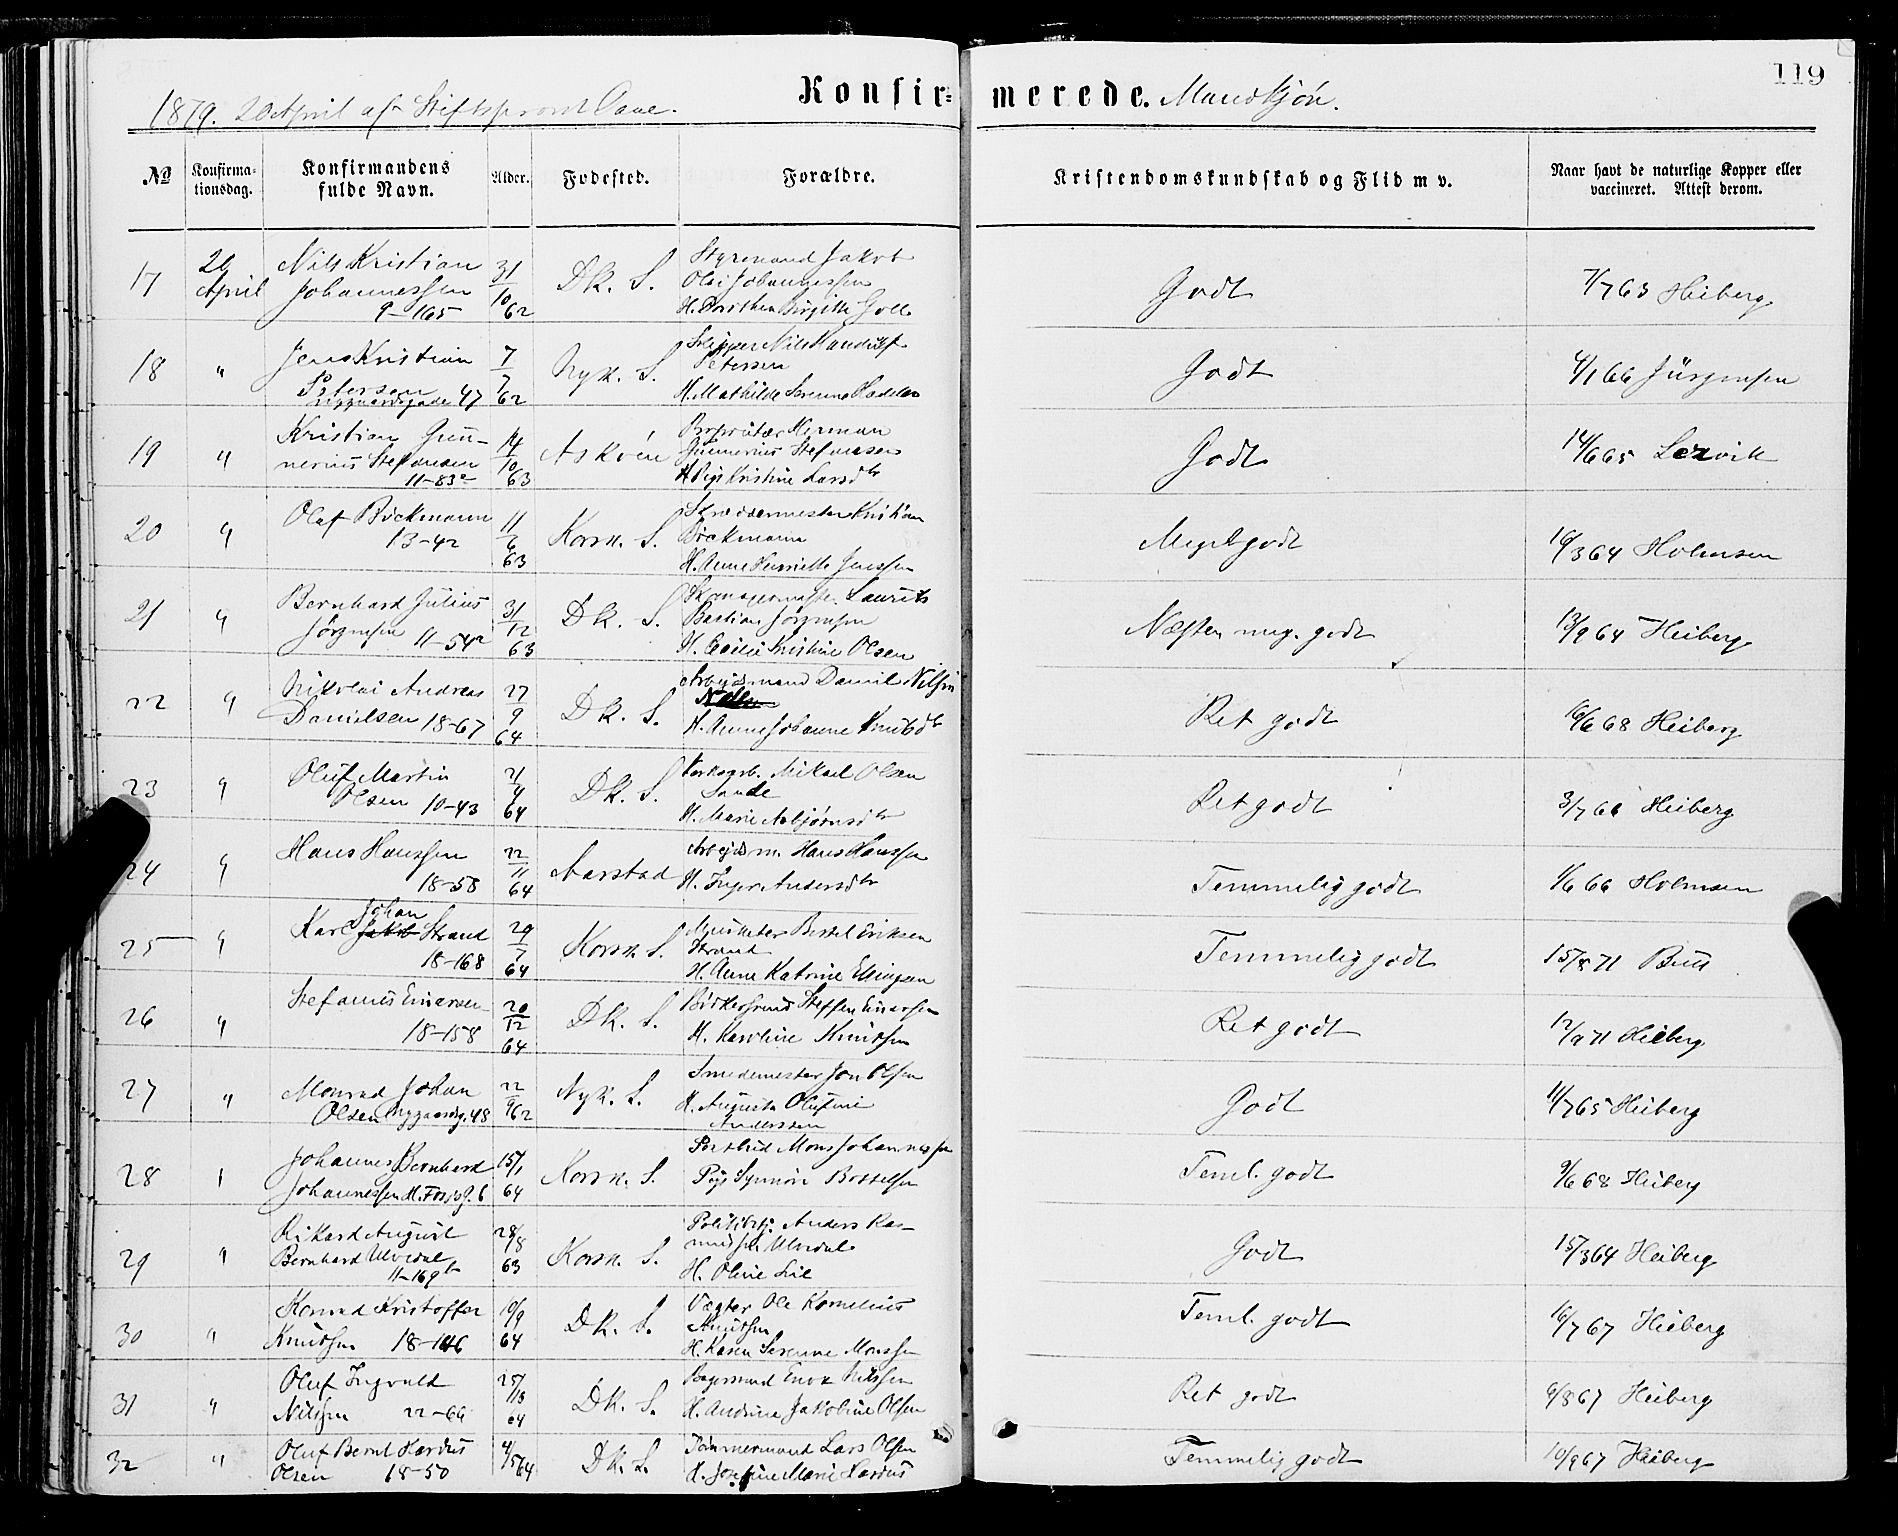 119
1879. 20 April af Stiftsprovst
Konfirmerede. Mandkjøn.
№ Konfirmationsdag. Konfirmandens fulde Navn. Alder. Fødested. Forældre. Kristendomskundskab og Flid m v. Naar havt de naturlige Kopper eller vaccineret. Attest derom.
17 20 April Nils Kristian Johannessen 9-165 31/10 62 Dk. S. Styrmand Jakob Olai Johannessen H. Dorthea Birgitte Godt 7/7 63 Heiberg
18 " Jens Kristian Petersen Nygaardsgade 47 7/7 62 Nyk. S. Skipper Nils Petersen H. Mathilde Severine Godt 4/1 66 Jürgensen
19 " Kristian Gunnerius Stefansen 11-83a 14/10 63 Askøen Proprietær Herman Gunnerius Stefansen H. Kristine Larsdtr Godt 14/6 65 Lexvik
20 " Olaf Böckmann 13-42 11/6 63 Korsk. S. Skræddermester Kristian Böckmann H. Anne Henriette Jenssen Meget godt 19/3 64 Holmsen
21 " Bernhard Julius Jörgensen 11-54a 31/12 63 Dk. S. Laurits Bastian Jörgensen H. Cecilie Kristine Olsen Næsten meg. godt 13/9 64 Heiberg
22 " Nikolai Andreas Danielsen 18-67 27/9 64 Dk. S. Arbejdsmand Daniel Nilsen H. Anne Johanne Knutsdtr Ret godt 16/6 68 Heiberg
23 " Oluf Martin Olsen 10-43 21/4 64 Dk. S. Mikael Olsen Sande H. Marie Asbjørnsdtr Ret godt 3/7 66 Heiberg
24 " Hans Hanssen 18-58 22/11 64 Aarstad Arbejdsm. Hans Hanssen H. Inger Andersdtr Temmelig godt 1/6 66 Holmsen
25 " Karl Johan Strand 18-168 29/7 64 Korsk. S. Musketer Bertel Eriksen Strand H. Anne Katrine Ellingsen Temmelig godt 15/8 71 Bull
26 " Stefanus Einarsen 18-158 20/12 64 Dk. S. Bødkersvend Steffen Einarsen H. Karoline Knutsen Ret godt 12/9 71 Heiberg
27 " Monrad Johan Olsen Nygaardsg. 48 22/9 62 Nyk. S. Smedemester Jon Olsen H. Augusta Olufine Anderssen Godt 11/7 65 Heiberg
28 " Johannes Bernhard Johannessen 15/1 64 Korsk. S. Mons Johannessen Pige Synnöve Bottelsen Teml. godt 9/6 68 Heiberg
29 " Rikard August Bernhard Ulvedal 11-169b 28/8 63 Korsk. S. Politibetj. Anders Rasmussen Ulvedal H. Oline Lie Godt 15/3 64 Heiberg
30 " Konrad Kristoffer Knutsen 18-146 10/9 64 Dk. S. Vægter Ole Kornelius Knutsen H. Karen Severine Monssen Teml. godt 16/7 67 Heiberg
31 " Oluf Ingvald Nilssen 22-66 25/18 64 Dk. S. Bagersvend Enok Nilssen H. Andrine Jakobine Olsen Ret godt 9/8 67 Heiberg
32 " Oluf Bernt Olsen 18-50 4/5 64 Dk. S. Tømmermand Lars Olsen H. Josefine Marie Temmelig godt 10/9 67 Heiberg